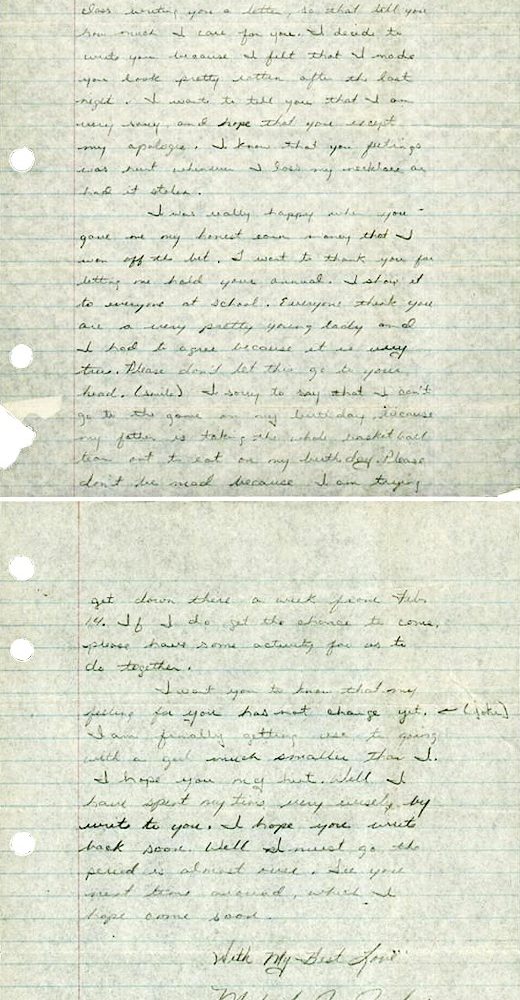 class writing you a letter, so that tell you
how much I care for you. I decide to
write you because I felt that I made
you look pretty rotten after the last
night. I want to tell you that I am
very sorry, and hope that you except
my apologie. I know that you feelings
was hurt whenever I loss my necklace or
had it stolen.
I was really happy when you
gave me my honest earn money that I
won off the bet. I want to thank you for
letting me hold your annual. I show it
to everyone at school. Everyone think you
are a very pretty young lady and
I had to agree because it is very
true. Please don't let this go to your
head. (smile) I sorry to say that I can't
go to the game on my birthday because
my father is taking the whole basketball
team out to eat on my birthday. Please
don't be mad because I am trying
get down there a week from Feb.
14. If I do get the chance to come,
please have some activity for us to
do together.
I want you to know that my
feeling for you has not change yet. (joke)
I am finally getting use to going
with a girl much smaller than I.
I hope you my hint. Well I
have spent my time very wisely by
write to you. I hope you write
back soon. Well I must go the
period is almost over. See you
next time around, which I
hope come soon.
With My Best Love